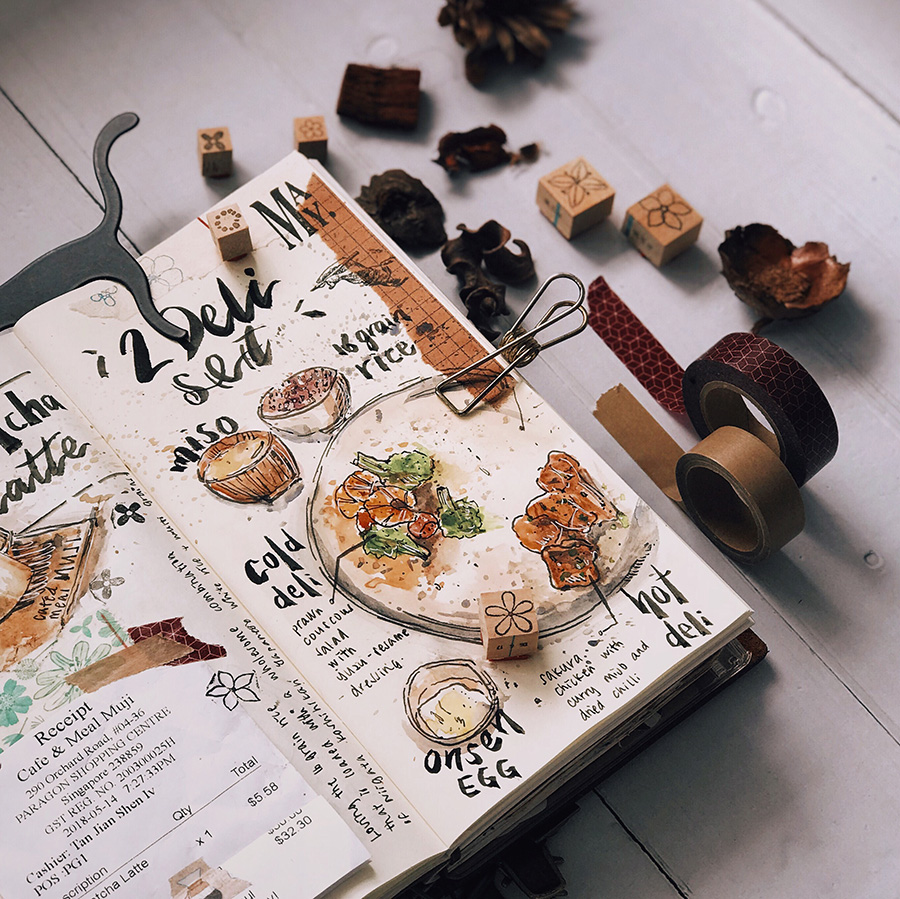 MAY.
2 Deli
set
16 grain
rice
miso
cold
deli
prawn &
couscous
salad
with
yuzu-sesame
dressing.
hot
deli
sakura
chicken with
curry miso and
dried chilli
onsen
EGG
Loving the 16 grain rice
that is loaded with
of niigata koshihikari & wholesome
combination
atte
cafe &
meal MUJI
Receipt
Cafe & Meal Muji
290 Orchard Road, #04-36
PARAGON SHOPPING CENTRE
Singapore 238859
GST REG NO. 200300025H
2018-05-14 7:27:33PM
Cashier: Tan Jian Shen Iv
POS :PG1
Qty
Total
scription
x 1
$5.58
tcha Latte
$32.30